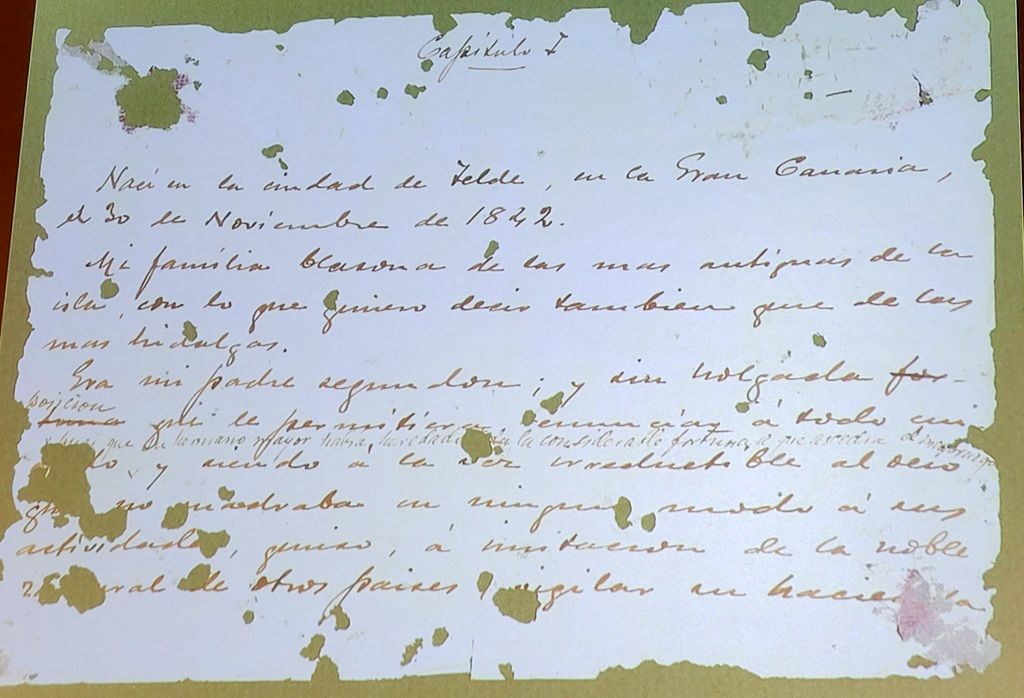 Capítulo I
Nací en la ciudad de Telde, en la Gran Canaria,
el 30 de Noviembre de 1842.
Mi família blasona de las mas antiguas de la
isla, con lo que quiero decir tambien que de las
mas hidalgas.
Era mi padre segundon; y sin holgada for-
posicion
tuna que le permitiera renunciar á todo
pues que su hermano mayor habia heredado la considerable fortuna, a que ascendia el mayorazgo
y siendo á la vez irreductible al ocio
que no cuadraba en ningun modo á sus
actividades, quiso, á imitacion de la noble
rural de otros paises, vigilar su hacienda